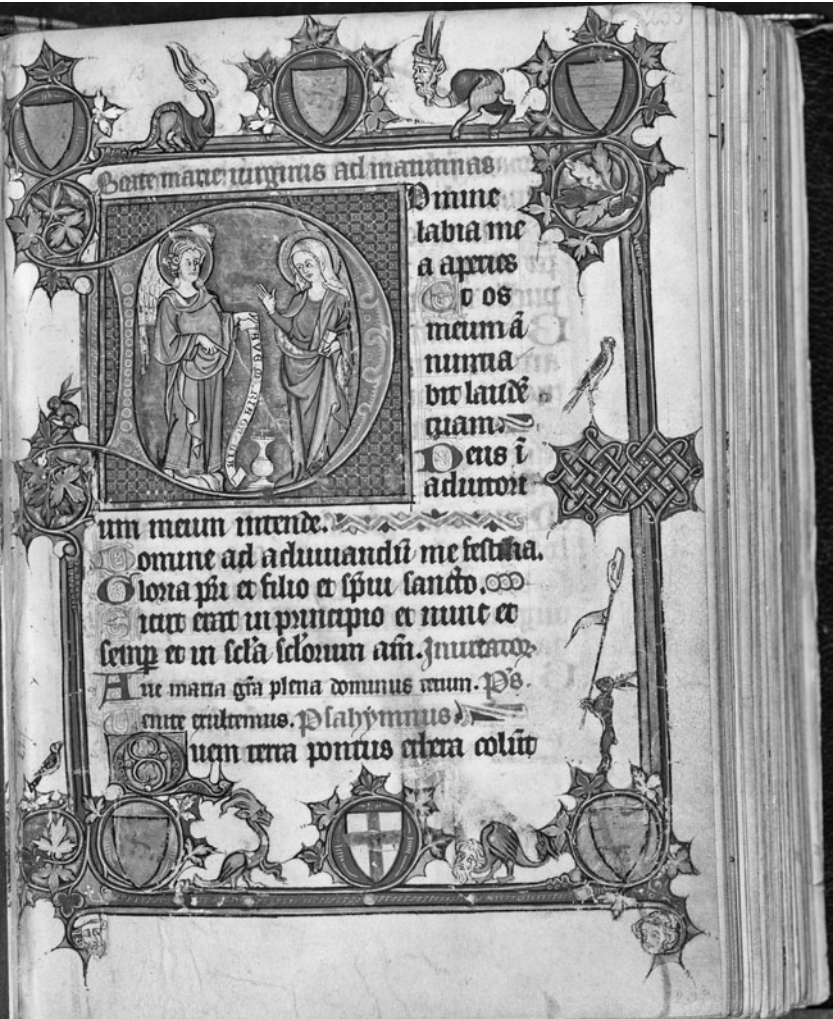 Beate marie virginis ad matutinas
Domine
labia me
a aperies
Et os
meum ā
nuntia
bit laudē
tuam.
Deus ī
adiutori
um meum intende.
Domine ad adiuuandū me festina.
Gloria pr̄i et filio et sp̄iu sancto.
Sicut erat in principio et nunc et
semp̲ et in sc̄la sc̄lorum am̄. Inuitator.
Aue maria gr̄a plena dominus tecum. P̄s.
Uenite exultemus. Psalhymnus.
Quem terra pontus ethera colūt